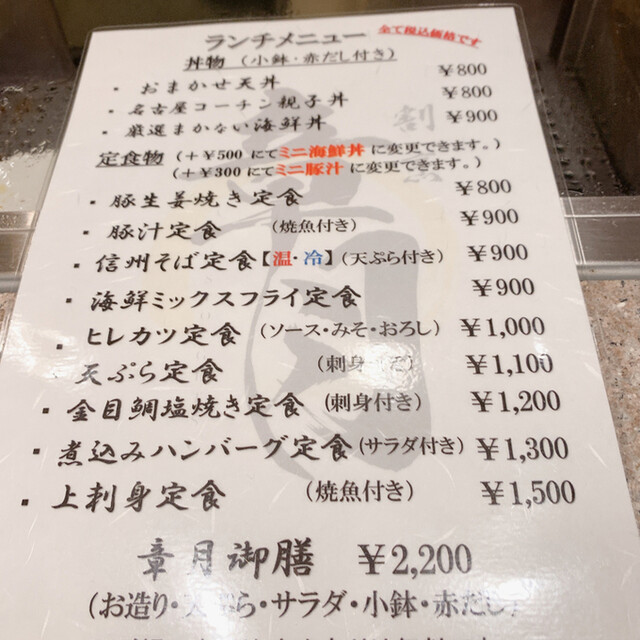 ランチメニュー 全て税込価格です
丼物 (小鉢・赤だし付き)
・おまかせ天丼 ¥800
・名古屋コーチン親子丼 ¥800
・厳選まかない海鮮丼 ¥900
定食物 (+¥500にてミニ海鮮丼に変更できます。)
(+¥300にてミニ豚汁に変更できます。)
・豚生姜焼き定食 ¥800
・豚汁定食 (焼魚付き) ¥900
・信州そば定食【温・冷】(天ぷら付き) ¥900
・海鮮ミックスフライ定食 ¥900
・ヒレカツ定食 (ソース・みそ・おろし) ¥1,000
・天ぷら定食 (刺身 ¥1,100
・金目鯛塩焼き定食 (刺身付き) ¥1,200
・煮込みハンバーグ定食 (サラダ付き) ¥1,300
・上刺身定食 (焼魚付き) ¥1,500
章月御膳 ¥2,200
(お造り・天ぷら・サラダ・小鉢・赤だし)
章月
割